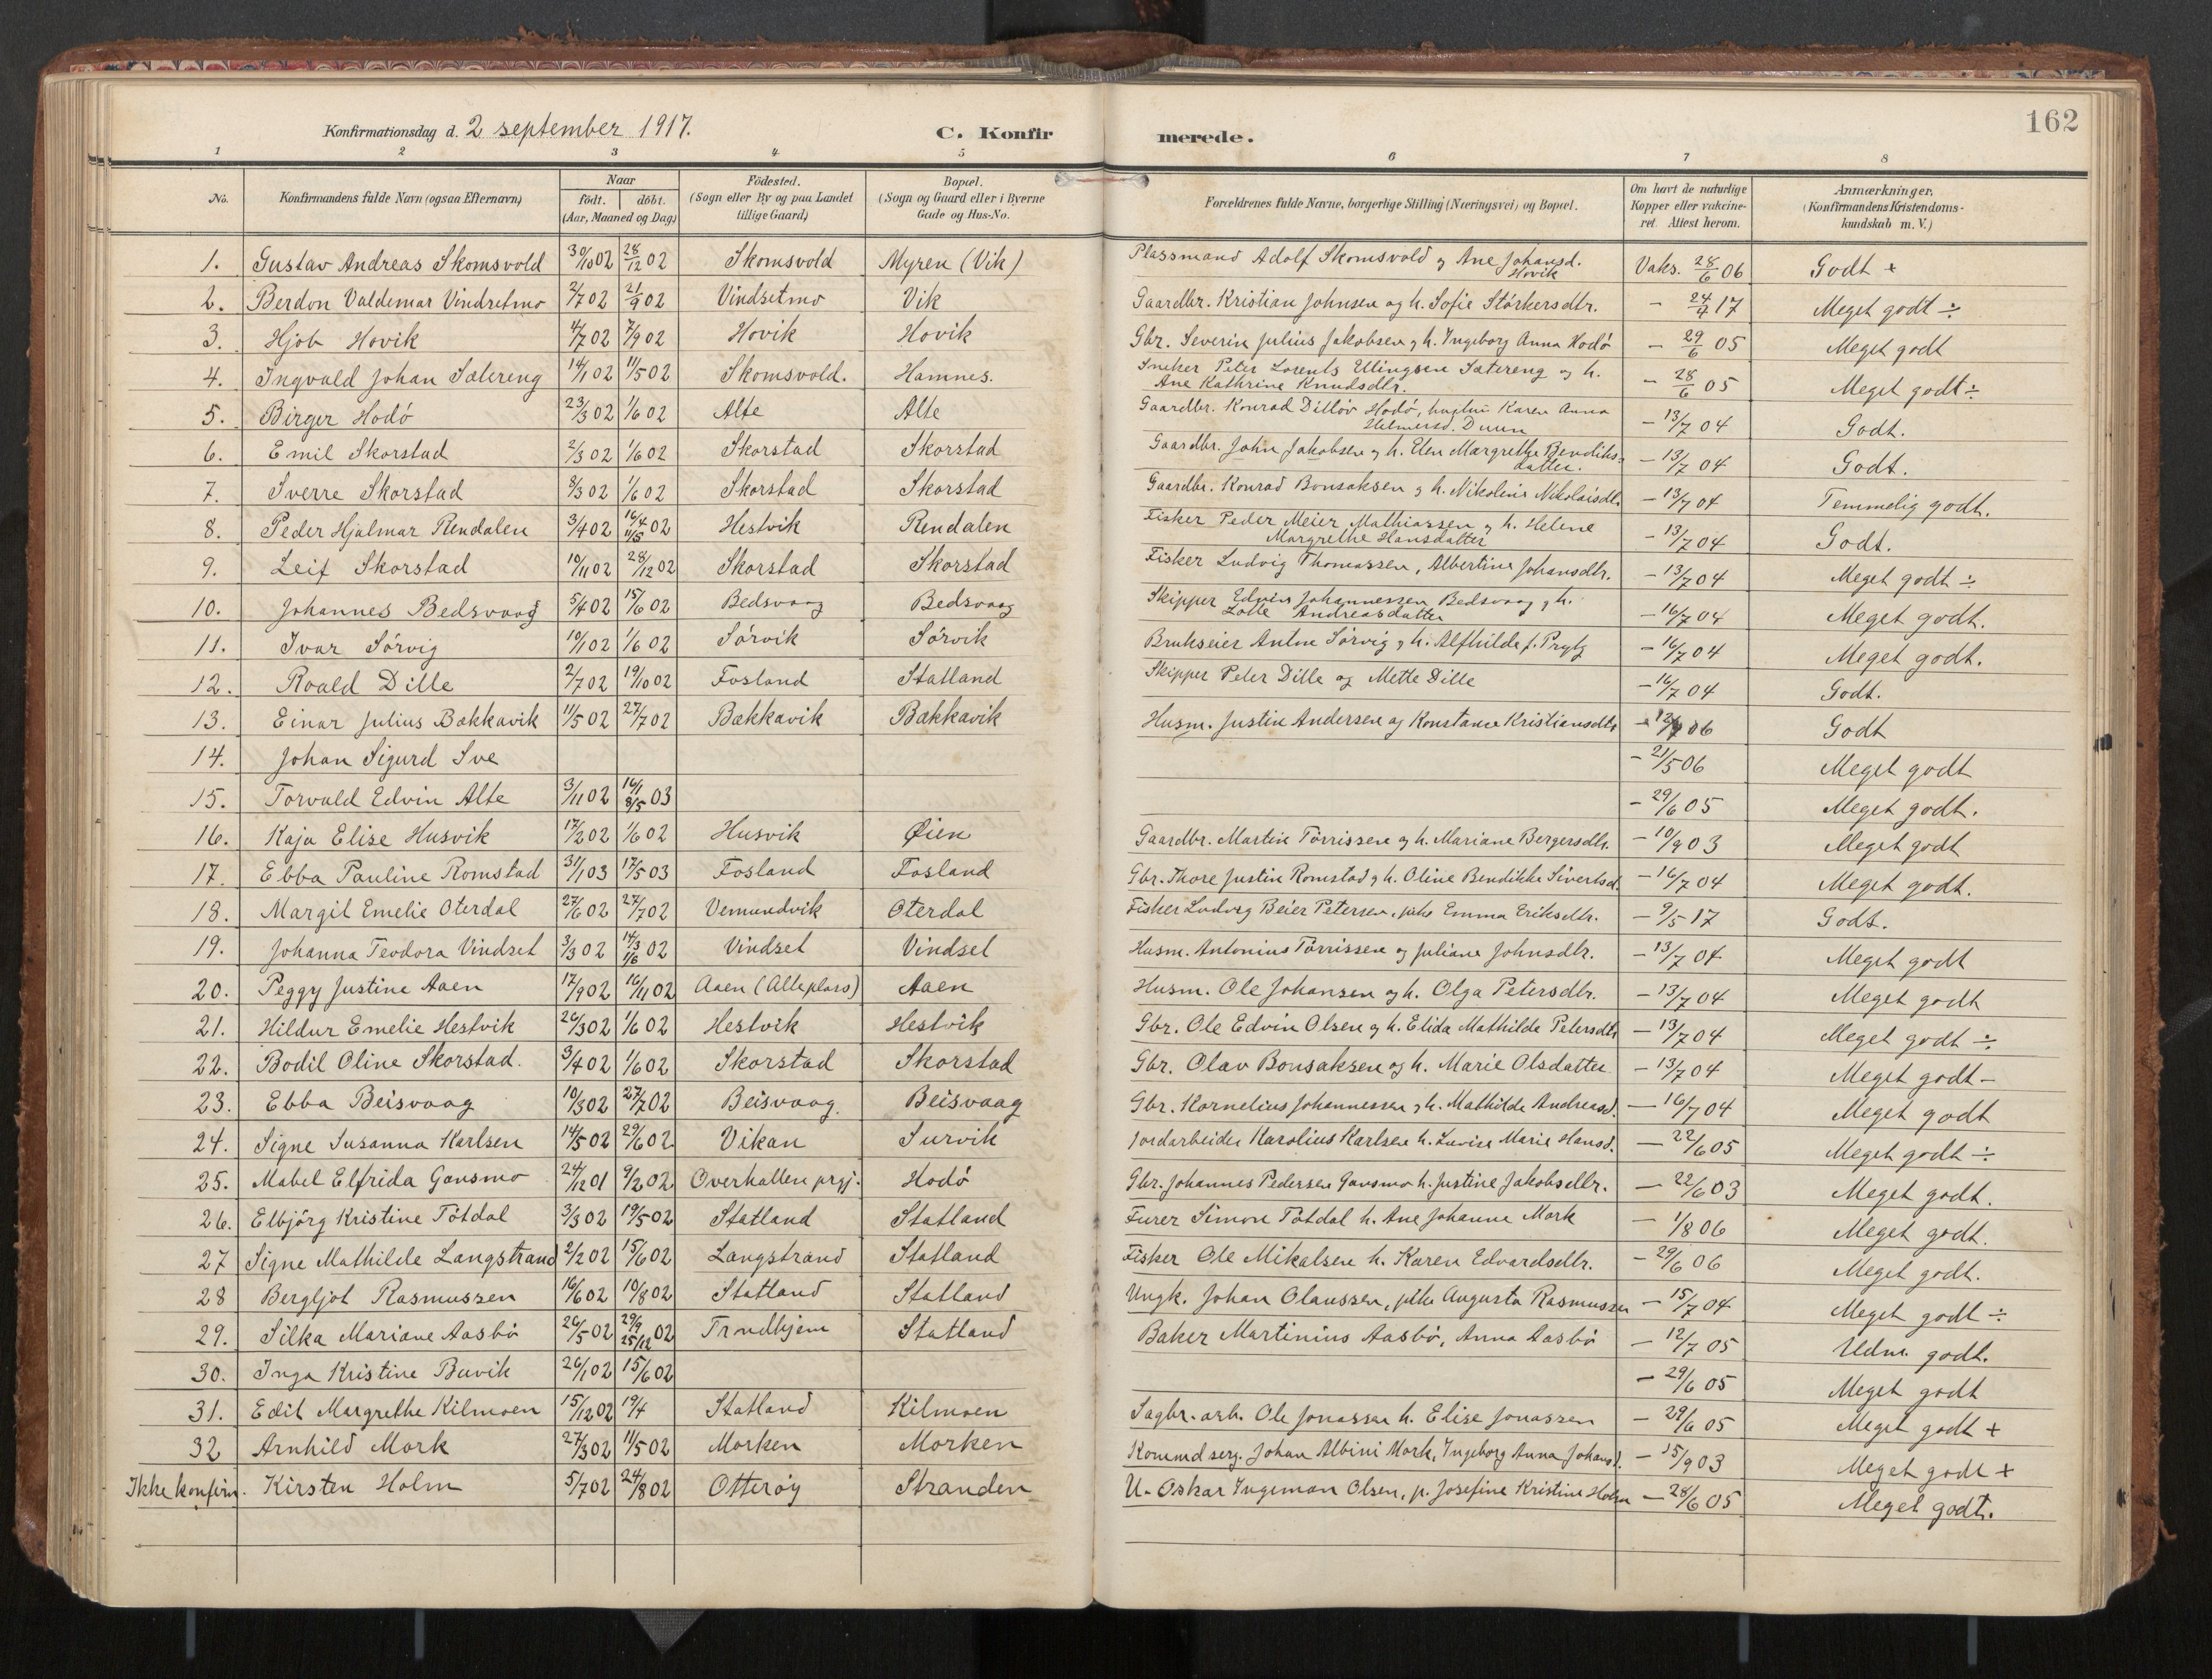 162
Konfirmationsdag d. 2 september 1917. C. Konfirmerede.
1 2 3 4 5 6 7 8
No. Konfirmandens fulde Navn (ogsaa Efternavn) Naar födt. döbt. (Aar, Maaned og Dag) Födested. (Sogn eller By og paa Landet tillige Gaard) Bopæl. (Sogn og Gaard eller i Byerne Gade og Hus-No. Forældrenes fulde Navne, borgerlige Stilling (Næringsvei) og Bopæl. Om havt de naturlige Kopper eller vakcineret. Attest herom. Anmærkninger. (Konfirmandens Kristendomskundskab m. V.)
1. Gustav Andreas Skomsvold 30/10 02 28/12 02 Skomsvold Myren (Vik) Plassmand Adolf Skomsvold og Ane Johansd. Hovik Vaks. 28/6 06 Godt +
2. Berdon Valdemar Vindsetmo 2/7 02 21/9 02 Vindsetmo Vik Gaardbr. Kristian Johnsen og h. Sofie Störkersdtr. - 24/4 17 Meget godt ÷
3. Hjob Hovik 4/7 02 7/9 02 Hovik Hovik Gbr. Severin Julius Jakobsen og h. Ingeborg Anna Hodö - 29/6 05 Meget godt
4. Ingvald Johan Sætereng 14/1 02 11/5 02 Skomsvold. Hamnes. Sneker Peter Lorents Ellingsen Sætereng og h. Ane Kathrine Knudsdtr. - 28/6 05 Meget godt ÷
5. Birger Hodö 23/3 02 1/6 02 Alte Alte Gaardbr. Konrad Ditlöv Hodö, hustru Karen Anna Helmersd. Duun - 13/7 04 Godt.
6. Emil Skorstad 2/3 02 1/6 02 Skorstad Skorstad Gaardbr. John Jakobsen og h. Elen Margrethe Bendiksdatter. - 13/7 04 Godt.
7. Sverre Skorstad 8/3 02 1/6 02 Skorstad Skorstad Gaardbr. Konrad Bonsaksen og h. Nikoline Nikolaisdtr - 13/7 04 Temmelig godt.
8. Peder Hjalmar Rendalen 3/4 02 16/4 11/5 02 Hestvik Rendalen Fisker Peder Meier Mathiassen og h. Helene Margrethe Hansdatter - 13/7 04 Godt.
9. Leif Skorstad 10/11 02 28/12 02 Skorstad Skorstad Fisker Ludvig Thomassen, Albertine Johansdtr. - 13/7 04 Meget godt ÷
10. Johannes Bedsvaag 5/4 02 15/6 02 Bedsvaag Bedsvaag Skipper Edvin Johannessen Bedsvaag og h. Lotte Andreasdatter - 16/7 04 Meget godt.
11. Ivar Sörvig 10/1 02 1/6 02 Sörvik Sörvik Brukseier Anton Sörvig og h. Alfhilde f. Prytz - 16/7 04 Meget godt.
12. Roald Dille 2/7 02 19/10 02 Fosland Statland Skipper Peter Dille og Mette Dille - 16/7 04 Godt.
13. Einar Julius Bakkavik 11/5 02 27/7 02 Bakkavik Bakkavik Husm. Justin Andersen og Konstanse Kristiansdtr 06 Godt
14. Johan Sigurd Sve - 21/5 06 Meget godt
15. Torvald Edvin Alte 3/11 02 16/1 8/5 03 - 29/6 05 Meget godt.
16. Kaja Elise Husvik 17/2 02 1/6 02 Husvik Øien Gaardbr. Martin Törrissen og h. Mariane Bergersdtr. - 10/9 03 Meget godt
17. Ebba Pauline Romstad 31/1 03 17/5 03 Fosland Fosland Gbr. Thore Justin Romstad og h. Oline Bendikke Sivertsd. - 16/7 04 Meget godt.
18. Margit Emelie Oterdal 27/6 02 27/7 02 Vemundvik Oterdal Fisker Ludvig Beier Petersen, pike Emma Eriksdtr. - 9/5 17 Godt.
19. Johanna Teodora Vindset 3/3 02 14/3 1/6 02 Vindset Vindset Husm. Antonius Törrissen og Juliane Johnsdtr. - 13/7 04 Meget godt
20. Peggy Justine Aaen 17/9 02 16/11 02 Aaen (Alteplass) Aaen Husm. Ole Johansen og h. Olga Petersdtr. - 13/7 04 Meget godt
21. Hildur Emelie Hestvik 26/3 02 1/6 02 Hestvik Hestvik Gbr. Ole Edvin Olsen og h. Elida Mathilde Petersdtr - 13/7 04 Meget godt ÷
22. Bodil Oline Skorstad. 3/4 02 1/6 02 Skorstad Skorstad Gbr. Olav Bonsaksen og h. Marie Olsdatter - 13/7 04 Meget godt -
23. Ebba Beisvaag 10/3 02 27/7 02 Beisvaag. Beisvaag Gbr. Kornelius Johannessen og h. Mathilde Andreasd. - 16/7 04 Meget godt
24. Signe Susanna Karlsen 14/5 02 29/6 02 Vikan Survik Jordarbeider Karolius Karlsen h. Lovise Marie Hansd. - 22/6 05 Meget godt ÷
25. Mabel Elfrida Gansmo 24/12 01 9/2 02 Overhallen prgj. Hodö Gbr. Johannes Pedersen Gansmo h. Justine Jakobsdtr. - 22/6 03 Meget godt.
26. Elbjörg Kristine Tötdal 3/3 02 19/5 02 Statland Statland Furer Simon Tötdal h. Ane Johanne Mork - 1/8 06 Meget godt.
27 Signe Mathilde Langstrand 2/2 02 15/6 02 Langstrand Statland Fisker Ole Mikalsen h. Karen Edvardsdtr. - 29/6 06 Meget godt.
28 Bergljot Rasmussen 16/6 02 10/8 02 Statland Statland Ungk. Johan Olaussen, pike Augusta Rasmussen - 15/7 04 Meget godt ÷
29. Silka Mariane Aasbö 26/5 02 29/9 25/12 02 Trondhjem Statland Baker Martinius Aasbö, Anna Aasbö - 12/7 05 Udm. godt.
30. Inga Kristine Buvik 26/1 02 15/6 02 - 29/6 05 Meget godt
31. Edit Margrethe Kilmoen 15/12 02 19/4 Statland Kilmoen Sagbr. arb. Ole Jonassen h. Elise Jonassen - 29/6 05 Meget godt +
32 Arnhild Mork 27/3 02 11/5 02 Morken Morken Kommd serg. Johan Albini Mork, Ingeborg Anna Johansd. - 15/9 03 Meget godt +
Ikke konfirm. Kirsten Holm 5/7 02 24/8 02 Otteröy Stranden U. Oskar Ingeman Olsen, p. Josefine Kristine Holm - 28/6 05 Meget godt.